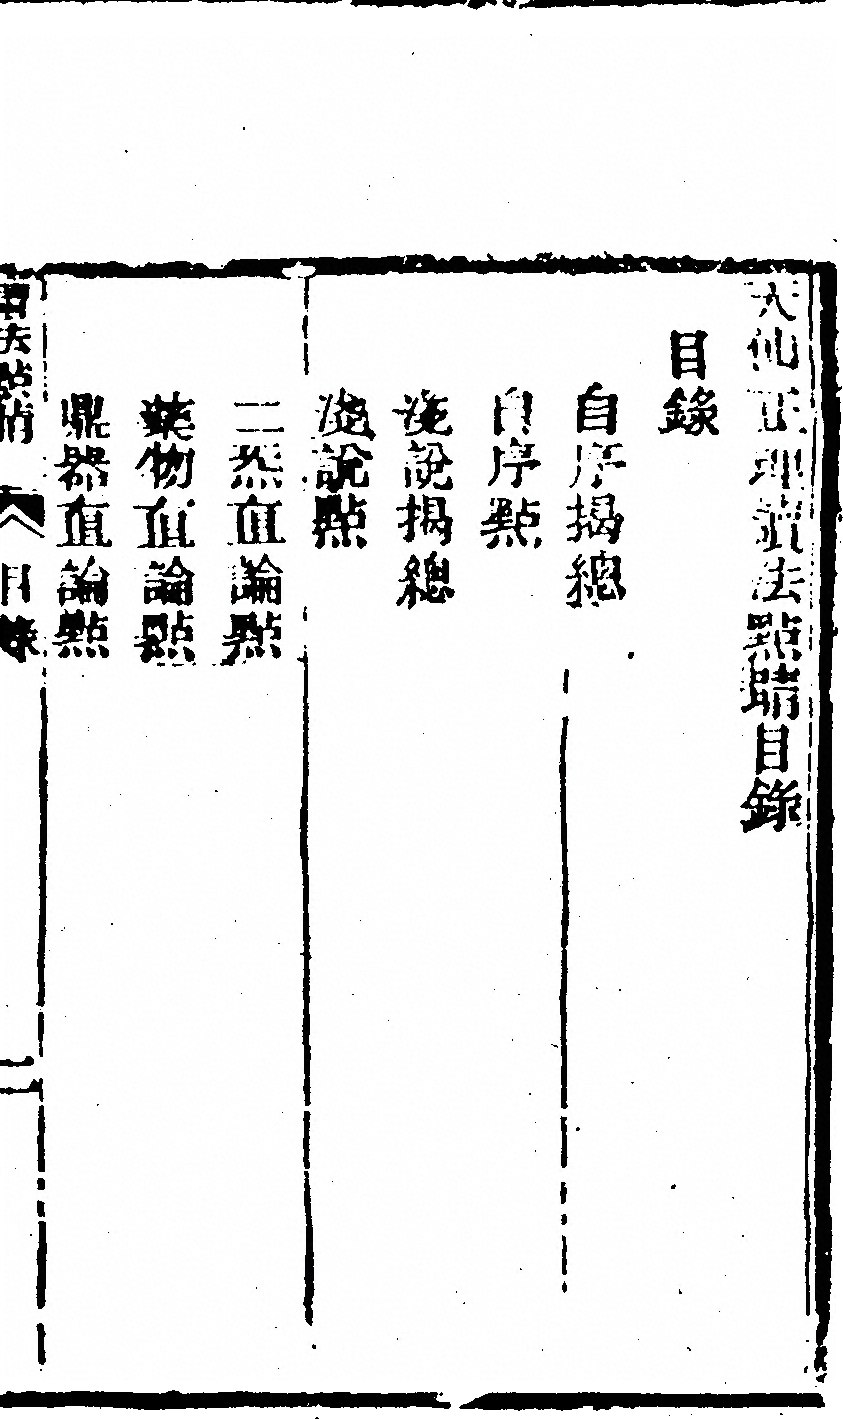 天仙正理讀法點睛目錄
目錄
自序揭總
自序點
淺說揭總
淺說點
二炁直論點
藥物直論點
鼎器直論點
讀法點睛
目錄
一